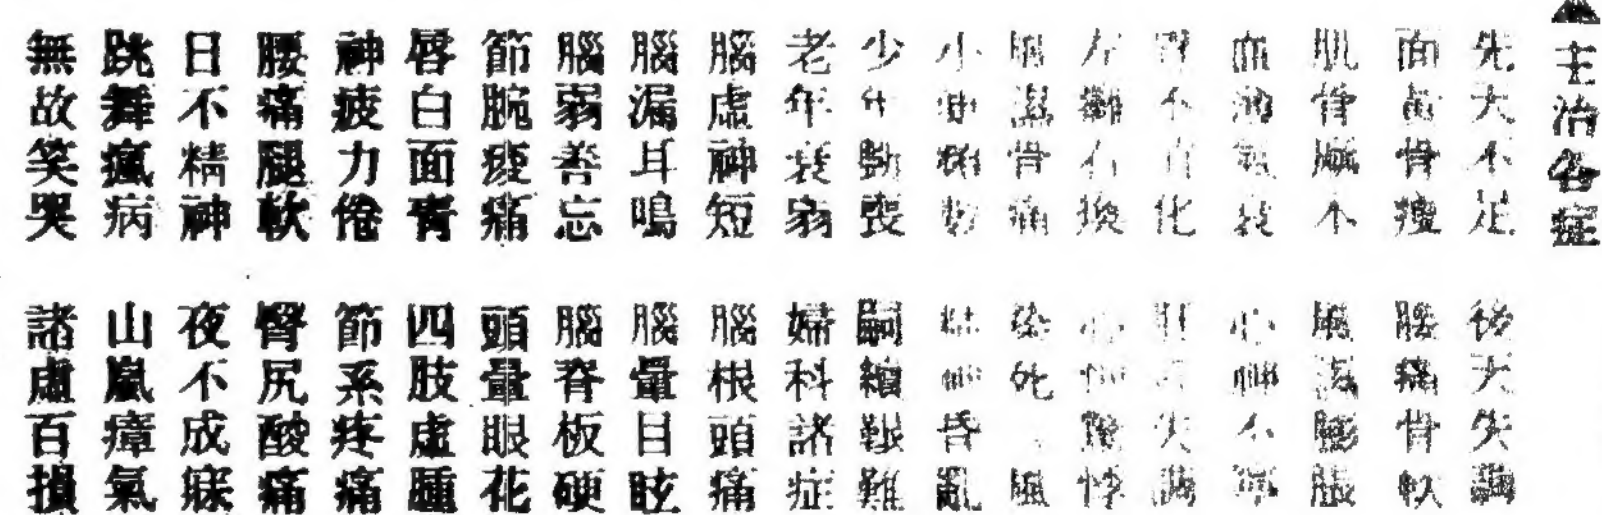 ▲主治各症
先天不足 後天失調
面黃骨瘦 腰痛骨軟
肌骨 風濕膨脹
血薄氣衰 心神不寧
胃不消化 失調
左癱右換 心驚悸
風濕骨痛 風
小 昏亂
少年斵喪 嗣續艱難
老年衰弱 婦科諸症
腦虛神短 腦根頭痛
腦漏耳鳴 腦暈目眩
腦弱善忘 腦脊板硬
節腕痠痛 頭暈眼花
唇白面青 四肢虛腫
神疲力倦 節系疼痛
腰痛腿軟 腎尻酸痛
日不精神 夜不成寐
跳舞瘋病 山嵐瘴氣
無故笑哭 諸虛百損